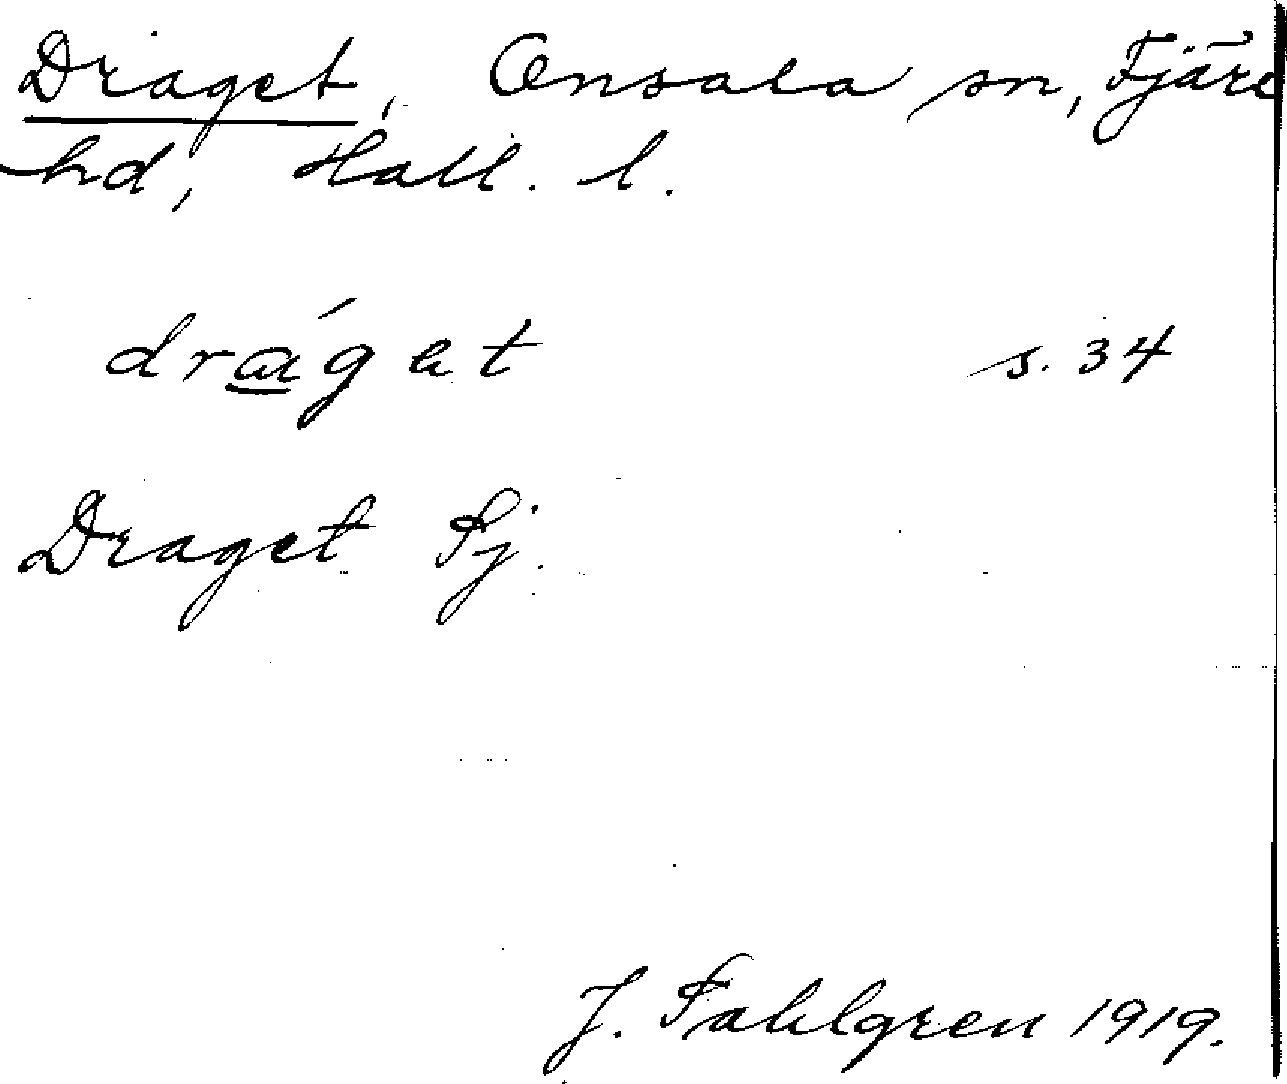 Draget, Onsala sn, Fjäre
hd, Hall. l.
dráget s. 34
Draget Sj.
J. Sahlgren 1919.